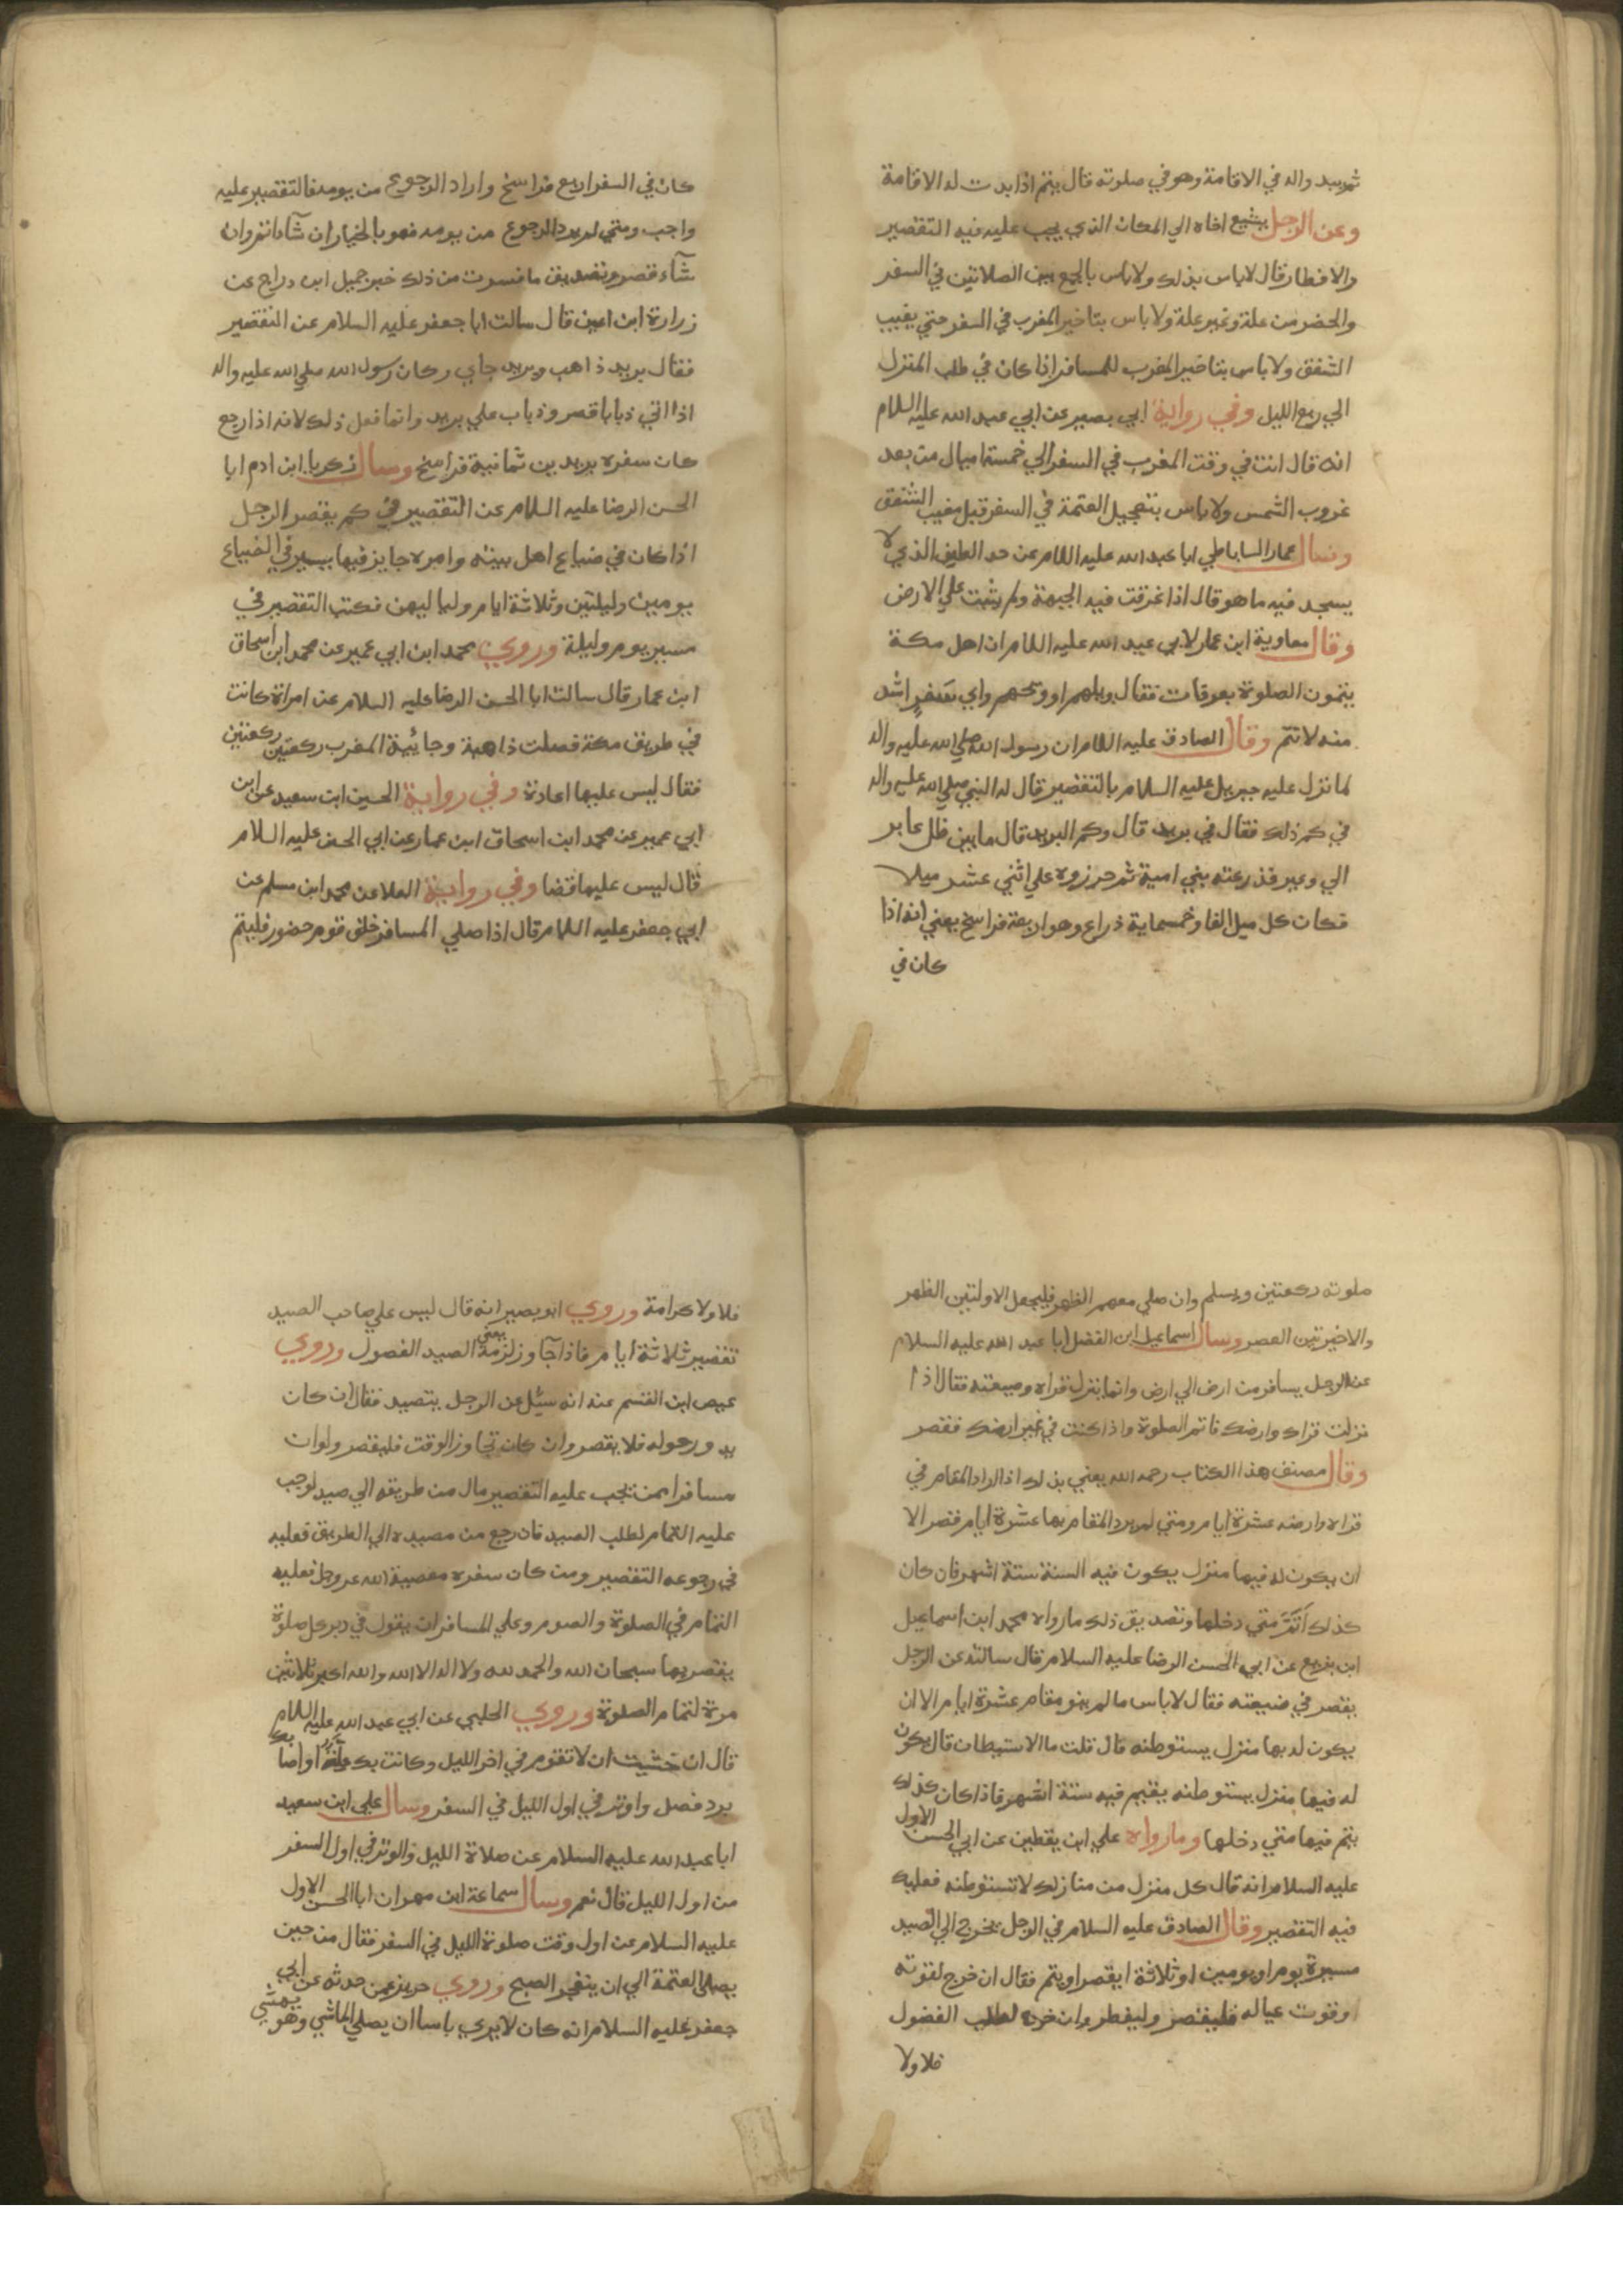 ثم يبد واله في الاقامة وهو في صلوته قال يتم اذا بدت له الاقامة
وعن الرجل يشيع اخاه الي المكان الذي يجب عليه فيه التقصير
والافطار قال لا باس بذلك ولا باس بالجمع بين الصلاتين في السفر
والحضر من علة وغير علة ولا باس بتاخير المغرب في السفر حتي يغيب
الشفق ولا باس بتاخير المغرب للمسافر اذا كان في طلب المنزل
الي ربع الليل وفي رواية ابي بصير عن ابي عبد الله عليه السلام
انه قال انت في وقت المغرب في السفر الي خمسة اميال من بعد
غروب الشمس ولا باس بتعجيل العتمة في السفر قبل مغيب الشفق
وسال عمار الساباطي ابا عبد الله عليه اللام عن حد الطين الذي لا
يسجد فيه ما هو قال اذا غرقت فيه الجبهة ولم يثبت علي الارض
وقال معاوية ابن عمار لابي عبد الله عليه اللام ان اهل مكة
يتمون الصلوة بعرفات فقال ويلهم او ويحهم واي سفر اشد
منه لا تتم وقال الصادق عليه اللام ان رسول الله صلي الله عليه واله
لما نزل عليه جبريل عليه السلام بالتقصير قال له النبي صلي الله عليه واله
في كم ذلك فقال في بريد قال وكم البريد قال ما بين ظل عاير
الي وعير فذرعته بني امية ثم جزروه علي اثني عشر ميلا
فكان كل ميل الفا وخمسماية ذراع وهو اربعة فراسخ يعني انه اذا
كان في
كان في السفر اربع فراسخ واراد الرجوع من يومه فالتقصير عليه
واجب ومتي لم يرد الرجوع من يومه فهو بالخيار ان شآء اتم وان
شآء قصر وتصديق ما فسرت من ذلك خبر جميل ابن دراج عن
زرارة ابن اعين قال سالت ابا جعفر عليه السلام عن التقصير
فقال بريد ذاهب وبريد جاي وكان رسول الله صلي الله عليه واله
اذا اتي ذبابا قصر وذباب علي بريد وانما فعل ذلك لانه اذا رجع
كان سفره بريدين ثمانية فراسخ وسال زكريا ابن ادم ابا
الحسن الرضا عليه السلام عن التقصير في كم يقصر الرجل
اذا كان في ضياع اهل بيته وامره جايز فيها يسير في الضياع
يومين وليلتين وثلاثة ايام ولياليهن فكتب التقصير في
مسير يوم وليلة وروي محمد ابن ابي عمير عن محمد ابن اسحاق
ابن عمار قال سالت ابا الحسن الرضا عليه السلام عن امراة كانت
في طريق مكة فصلت ذاهبة وجائية المغرب ركعتين ركعتين
فقال ليس عليها اعادة وفي رواية الحسين ابن سعيد عن ابن
ابي عمير عن محمد ابن اسحاق ابن عمار عن ابي الحسن عليه السلام
قال ليس عليها قضا وفي رواية العلا عن محمد ابن مسلم عن
ابي جعفر عليه اللام قال اذا صلي المسافر خلق قوم حضور فليتم
صلوته ركعتين ويسلم وان صلي معهم الظهر فليجعل الاولتين الظهر
والاخيرتين العصر وسال اسماعيل ابن الفضل ابا عبد الله عليه السلام
عن الرجل يسافر من ارض الي ارض وانما ينزل قراه وضيعته فقال اذا
نزلت قراك وارضك فاتم الصلوة واذا كنت في غير ارضك فقصر
وقال مصنف هذا الكتاب رحمه الله يعني بذلك اذا اراد المقام في
قراه وارضه عشرة ايام ومتي لم يرد المقام بها عشرة ايام قصر الا
ان يكون له فيها منزل يكون فيه السنة ستة اشهر فان كان
كذلك اتم متي دخلها وتصديق ذلك ما رواه محمد ابن اسماعيل
ابن بزيع عن ابي الحسن الرضا عليه السلام قال سالته عن الرجل
يقصر في ضيعته فقال لا باس ما لم ينو مقام عشرة ايام الا ان
يكون له بها منزل يستوطنه قال قلت ما الاستيطان قال يكون
له فيها منزل يستوطنه يقيم فيه ستة اشهر فاذا كان كذلك
يتم فيها متي دخلها وما رواه علي ابن يقطين عن ابي الحسن الاول
عليه السلام انه قال كل منزل من منازلك لا تستوطنه فعليك
فيه التقصير وقال الصادق عليه السلام في الرجل يخرج الي الصيد
مسيرة يوم او يومين او ثلاثة ايقصر او يتم فقال ان خرج لقوته
او قوت عياله فليقصر وليفطر وان خرج لطلب الفضول
فلا ولا
فلا ولا كرامة وروي ابو بصير انه قال ليس علي صاحب الصيد
تقصير ثلاثة ايام فاذا جآوز لزمه يعني الصيد الفصول وروي
عيص ابن القسم عنه انه سئل عن الرجل يتصيد فقال ان كان
يدور حوله فلا يقصر وان كان تجاوز الوقت فليقصر ولو ان
مسافرا ممن يجب عليه التقصير مال من طريقه الي صيد لوجب
عليه التمام لطلب الصيد فان رجع من مصيده الي الطريق فعليه
في رجوعه التقصير ومن كان سفره معصية لله عز وجل فعليه
التمام في الصلوة والصوم وعلي المسافر ان يقول في دبر كل صلوة
يقصر بها سبحان الله والحمد لله ولا اله الا الله والله اكبر ثلاثين
مرة لتمام الصلوة وروي الحلبي عن ابي عبد الله عليه اللام
قال ان خشيت ان لا تقوم في اخر الليل وكانت بك علة او اصابك
برد فصل واوتر في اول الليل في السفر وسال علي ابن سعيد
ابا عبد الله عليه السلام عن صلاة الليل والوتر في اول السفر
من اول الليل قال نعم وسال سماعة ابن مهران ابا الحسن الاول
عليه السلام عن اول وقت صلوة الليل في السفر فقال من حين
يصلي العتمة الي ان ينفجر الصبح وروي حريز عمن حدثه عن ابي
جعفر عليه السلام انه كان لا يري باسا ان يصلي الماشي وهو يمشي